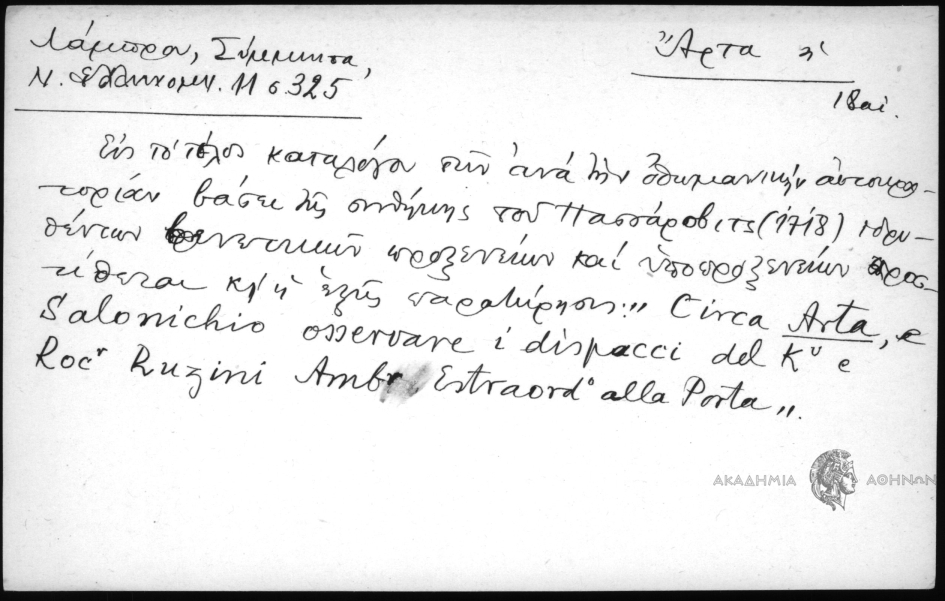 Λάμπρου, Σύμμικτα,
Ν. Ἑλληνομν. 11 σ 325
Ἄρτα ἡ
18 αἰ.
Εἰς τὸ τέλος καταλόγου τῶν ἀνὰ τὴν ὀθωμανικὴν αὐτοκρα-
τορίαν βάσει τῆς συνθήκης τοῦ Πασσάροβιτς (1718) ἱδρυ-
θέντων βενετικῶν προξενείων καὶ ὑποπροξενείων προσ-
τίθεται κ/ ἡ ἑξῆς παρατήρησις: „ Circa Arta, e
Salonichio osservare i dispacci del Kʳ e
Rocʳ Ruzini Ambr Estraordº alla Porta „.
ΑΚΑΔΗΜΙΑ ΑΘΗΝΩΝ